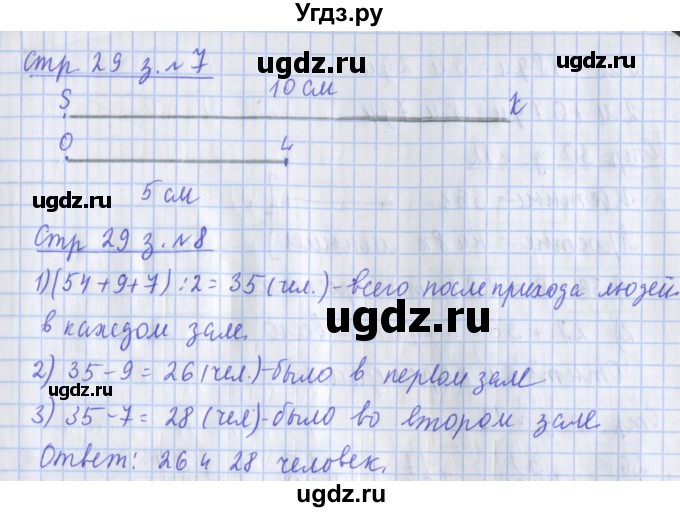 Угдз.ру
Стр. 29 з. №7
ugdz.ru
10 см
S
K
O
4
ugdz.ru
ugdz.ru
5 см
Стр 29 з. №8
1) (54+9+7):2=35 (чел.)-всего после прихода людей
в каждом зале.
ugdz.ru
2) 35-9=26 (чел.)-было в первом зале
ugdz.ru
3) 35-7=28 (чел)-было во втором зале
Ответ: 26 и 28 человек.
ugdz.ru
ugdz.ru